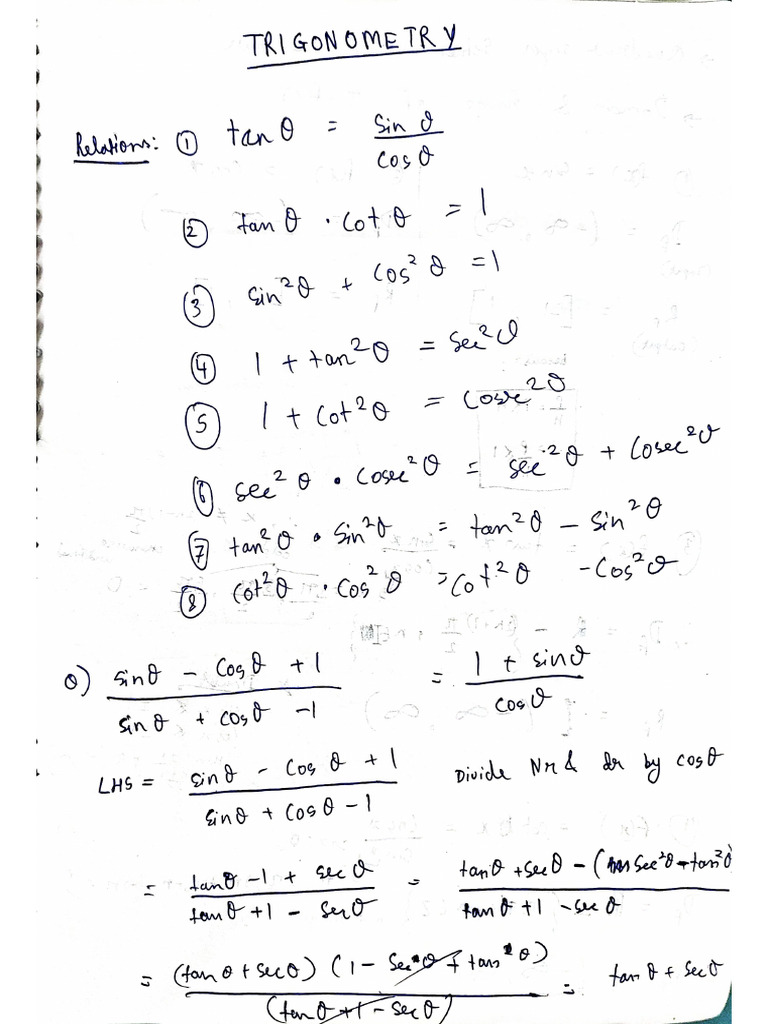 TRIGONOMETRY
Relations: ① tan θ = sin θ / cos θ
② tan θ · cot θ = 1
③ sin²θ + cos²θ = 1
④ 1 + tan²θ = sec²θ
⑤ 1 + cot²θ = cosec²θ
⑥ sec²θ · cosec²θ = sec²θ + cosec²θ
⑦ tan²θ · sin²θ = tan²θ − sin²θ
⑧ cot²θ · cos²θ = cot²θ − cos²θ
Q) (sinθ − cosθ + 1) / (sinθ + cosθ − 1) = (1 + sinθ) / cosθ
LHS = (sinθ − cosθ + 1) / (sinθ + cosθ − 1) Divide Nr & dr by cosθ
= (tanθ − 1 + secθ) / (tanθ + 1 − secθ) = (tanθ + secθ − (sec²θ − tan²θ)) / (tanθ + 1 − secθ)
= (tanθ + secθ) (1 − secθ + tanθ) / (tanθ + 1 − secθ) = tanθ + secθ